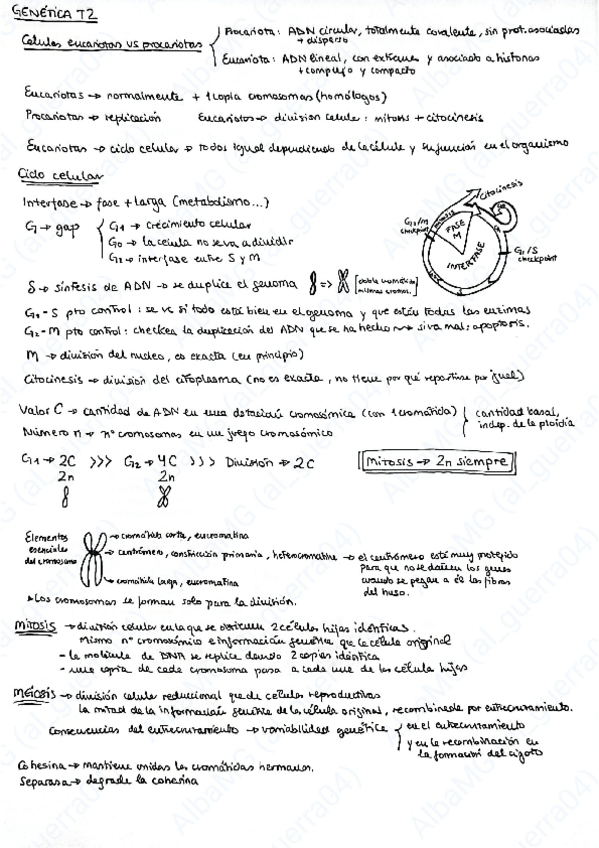 GENÉTICA T2
Células eucariotas vs procariotas
Procariota: ADN circular, totalmente covalente, sin prot. asociadas
+ disperso
Eucariota: ADN lineal, con extremos y asociado a histonas
+ complejo y compacto
Eucariotas → normalmente + 1 copia cromosomas (homólogos)
Procariotas → replicación Eucariotas → división celular: mitosis + citocinesis
Eucariotas → ciclo celular → todos igual dependiendo de la célula y su función en el organismo
Ciclo celular
Interfase → fase + larga (metabolismo...)
G → gap
G1 → crecimiento celular
G0 → la célula no se va a dividir
G2 → interfase entre S y M
Citocinesis
G2/M checkpoint
FASE M
INTERFASE
G1/S checkpoint
S → síntesis de ADN → se duplica el genoma => [doble cromátida mismos cromos.]
G1-S pto control: se ve si todo está bien en el genoma y que estén todas las enzimas
G2-M pto control: checkea la duplicación del ADN que se ha hecho → si va mal: apoptosis.
M → división del núcleo, es exacta (en principio)
Citocinesis → división del citoplasma (no es exacta, no tiene por qué repartirse por igual)
Valor C → cantidad de ADN en una dotación cromosómica (con 1 cromátida) { cantidad basal, indep. de la ploidía
Número n → nº cromosomas en un juego cromosómico
G1 → 2C >>> G2 → 4C >>> División → 2C
Mitosis → 2n siempre
2n 2n
Elementos esenciales del cromosoma
→ cromátida corta, eucromatina
→ centrómero, constricción primaria, heterocromatina → el centrómero está muy protegido
para que no se dañen los genes
cuando se pegan a él las fibras
del huso.
→ cromátida larga, eucromatina
* Los cromosomas se forman solo para la división.
MITOSIS → división celular en la que se obtienen 2 células hijas idénticas.
Mismo nº cromosómico e información genética que la célula original
- la molécula de DNA se replica dando 2 copias idénticas
- una copia de cada cromosoma pasa a cada una de las células hijas
MEIOSIS → división celular reduccional que da células reproductivas
la mitad de la información genética de la célula original, recombinada por entrecruzamiento.
Consecuencias del entrecruzamiento → variabilidad genética { en el entrecruzamiento
y en la recombinación en
la formación del cigoto
Cohesina → mantiene unidas las cromátidas hermanas.
Separasa → degrada la cohesina